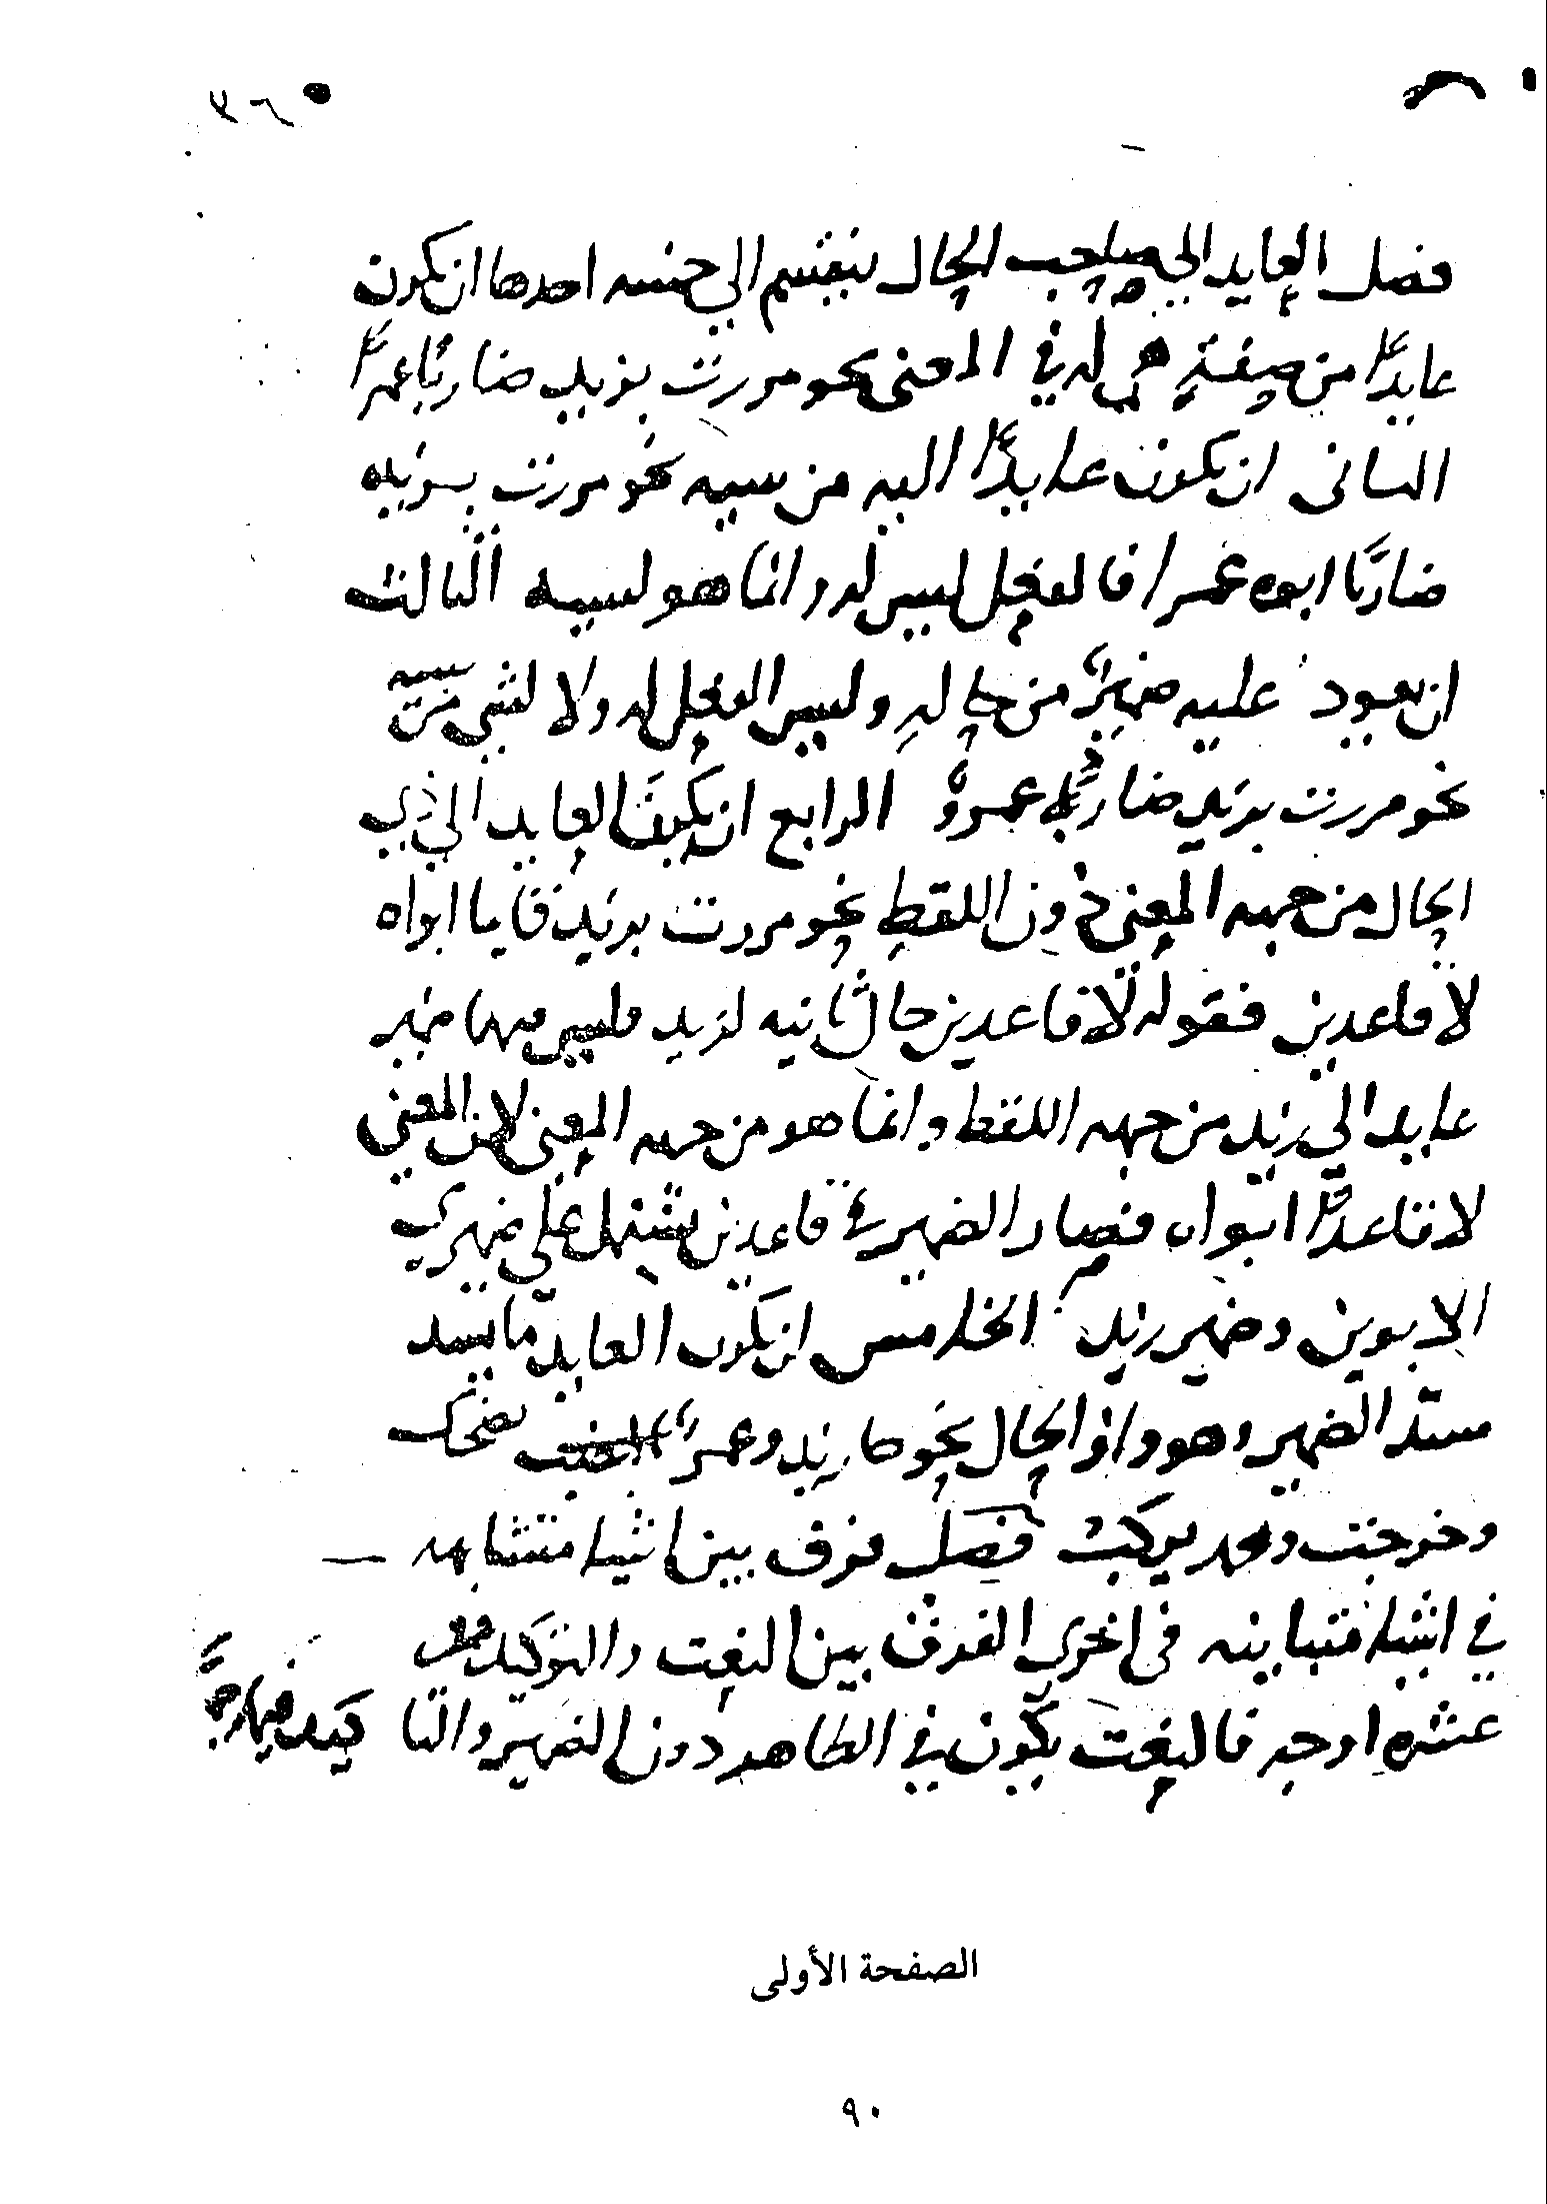 ٣٦
فصل العايد الى صاحب الحال ينقسم الي خمسه احدها ان يكون
عايدًا من صفة هي له في المعنى نحو مررت بزيد ضاربًا عمرًا
الثاني ان يكون عايدًا اليه من سببه نحو مررت بزيد
ضاربًا ابوه عمرا فالفعل ليس له وانما هو لسببه الثالث
ان يعود عليه ضميرٌ من حاله وليس الفعل له ولا لشي من سببه
نحو مررت بزيد ضاربُه عمروٌ الرابع ان يكون العايد الي ذي
الحال من جهه المعنى دون اللفظ نحو مررت بزيد قايما ابواه
لا قاعدين فقوله لا قاعدين حال ثانيه لزيد فليس فيها ضمير
عايد الي زيد من جهه اللفظ وانما هو من جهه المعنى لان المعني
لا قاعدًا ابواه فصار الضمير في قاعدين يشتمل علي ضميري
الابوين وضمير زيد الخامس ان يكون العايد ما يسد
مسد الضمير وهو واو الحال نحو جا زيد وعمرٌو يضحك
وخرجت ومحمد يركب فصل فرق بين اشيا متشابهه
في اشيا متباينه في اخري الفرق بين النعت والتوكيد من
عشره اوجه فالنعت يكون في الظاهر دون الضمير والتا كيد فيهما
الصفحة الأولى
٩٠